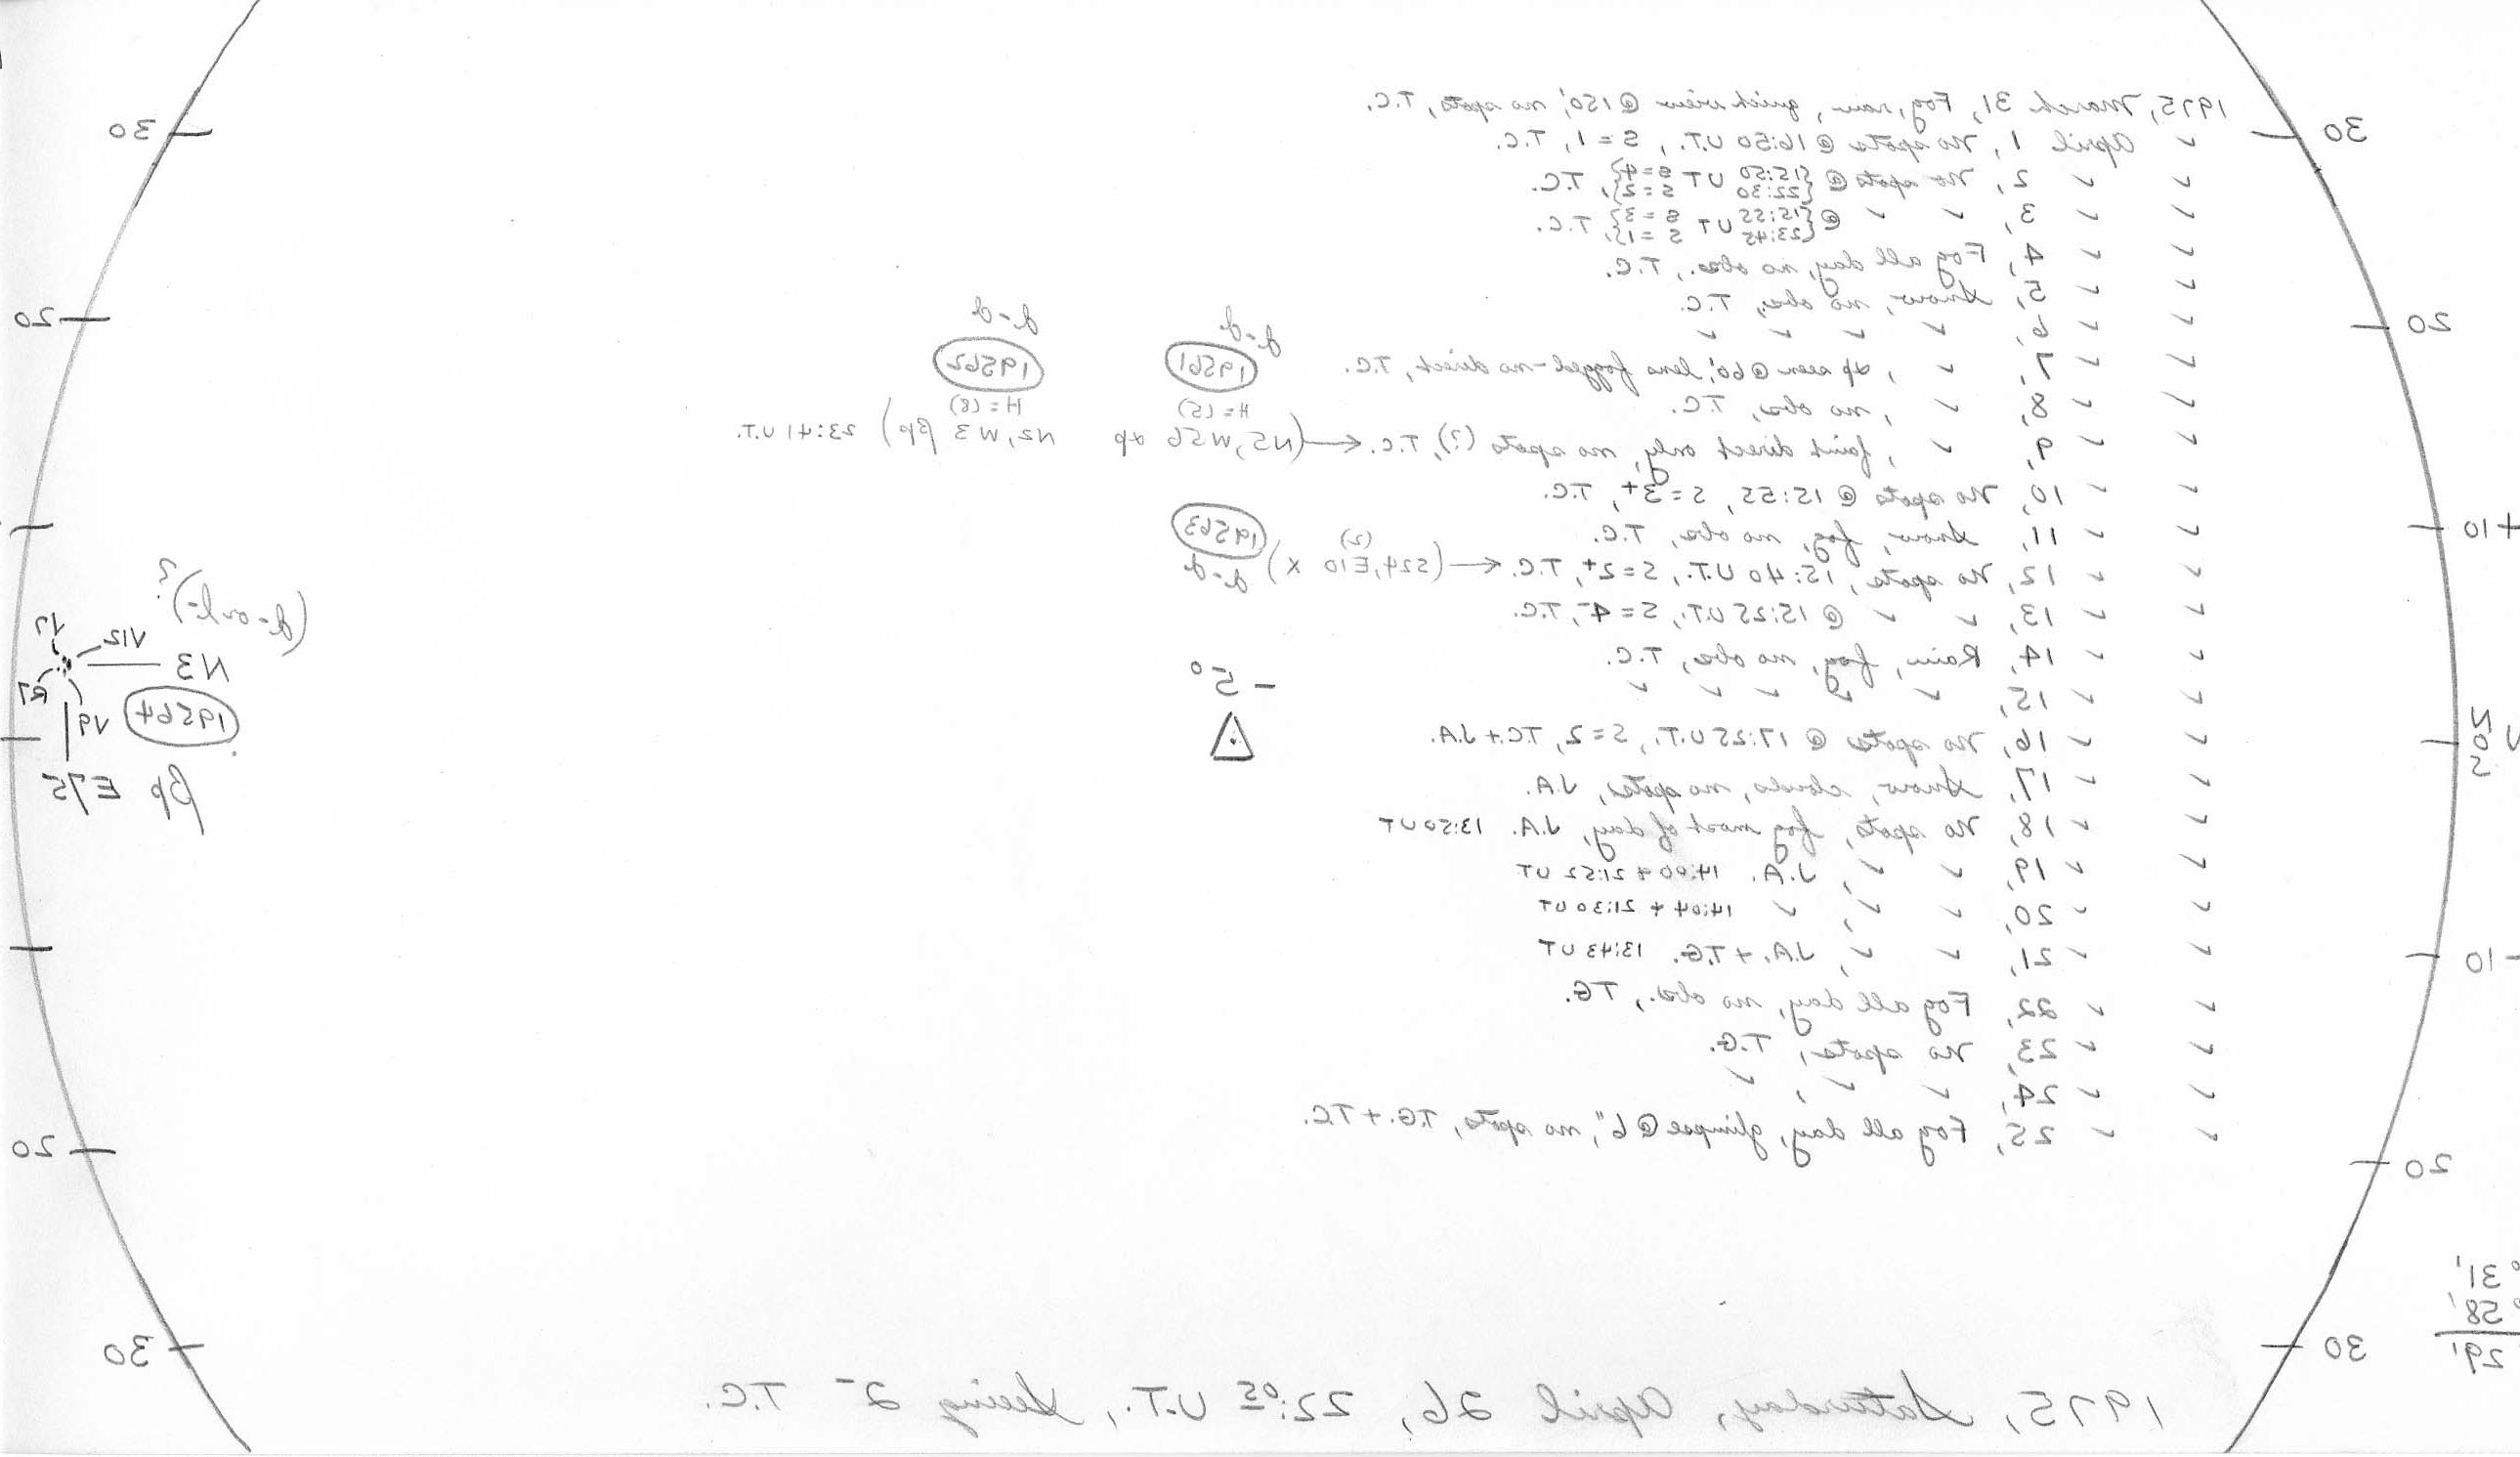 1975, March 31, Fog, rain, quick view @ 150', no spots, T.C.
" April 1, No spots @ 16:50 U.T., S = 1, T.C.
" " 2, No spots @ {15:50 UT S=4} {22:30 S=2}, T.C.
" " 3, " " @ {15:55 UT S=3} {23:45 S=1}, T.C.
" " 4, Fog all day, no obs., T.C.
" " 5, Snow, no obs, T.C.
" " 6, " " " "
" " 7, " , αp seen @ 60', lens fogged - no direct, T.C.
" " 8, " , no obs, T.C.
" " 9, " , faint direct only, no spots (?), T.C. ← (N5, W56 αp N2, W3 βp) 23:41 U.T.
d-d d-d
19561 19562
H = (5) H = (8)
" " 10, No spots @ 15:55, S = 3+, T.C.
" " 11, Snow, fog, no obs, T.C.
" " 12, No spots, 15:40 U.T., S = 2+, T.C. ← (S24, E10 X) d-d
(2)
19563
" " 13, " " @ 15:25 U.T., S = 4-, T.C.
" " 14, Rain, fog, no obs, T.C.
" " 15, " " " " "
" " 16, No spots @ 17:25 U.T., S = 2, T.C. + J.A.
" " 17, Snow, clouds, no spots, J.A.
" " 18, No spots, fog most of day, J.A. 13:50 UT
" " 19, " ", J.A. 14:00 + 21:52 UT
" " 20, " ", " 14:04 + 21:30 UT
" " 21, " ", J.A. + T.G. 13:43 UT
" " 22, Fog all day, no obs., T.G.
" " 23, No spots, T.G.
" " 24, " ", "
" " 25, Fog all day, glimpse @ 6", no spots, T.G. + T.C.
- 5°
V12
N3
19564
V9
βp E75
30
20
+10
N
0
S
-10
20
30
31'
58'
29'
30
20
20
30
1975, Saturday, April 26, 22:05 U.T., Seeing 2- T.C.